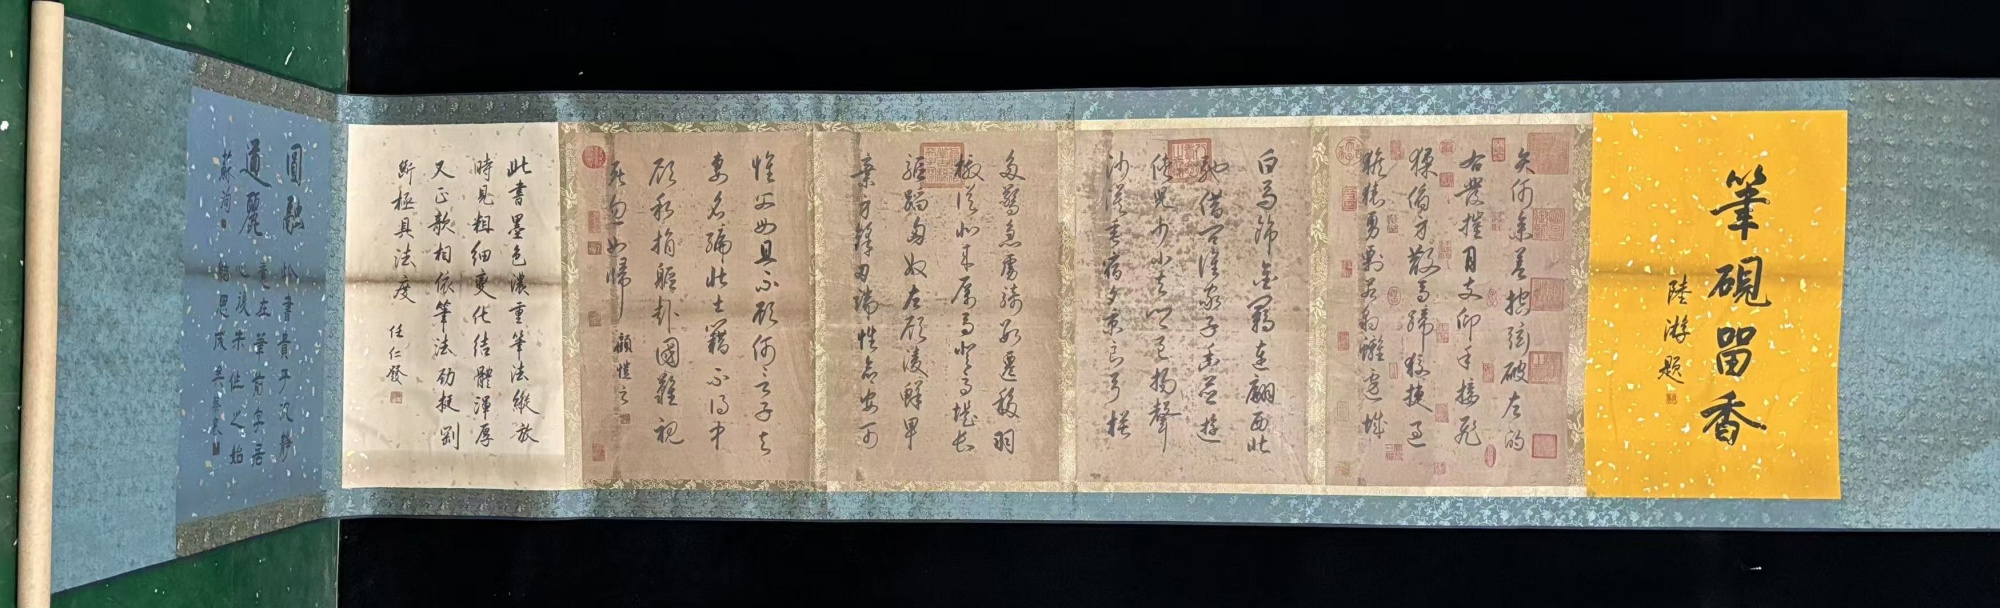 筆硯留香
陸游題
矢何參差控弦破左的
右發摧月支仰手接飛
猱俯身散馬蹄狡捷過
猴猿勇剽若豹螭邊城
白馬飾金羈連翩西北
馳借問誰家子幽并遊
俠兒少小去鄉邑揚聲
沙漠垂宿昔秉良弓楛
多驚急虜騎數遷移羽
檄從北來厲馬登高堤長
驅蹈匈奴左顧凌鮮卑
棄身鋒刃端性命安可
懷父母且不顧何言子與
妻名編壯士籍不得中
顧私捐軀赴國難視
死忽如歸 顧愷之
此書墨色濃重筆法縱放
時見粗細變化結體渾厚
又正欹相依筆法勁挺剛
斷極具法度 任仁發
圓融
遒麗
蘇洵
書貴乎沉靜
意在筆前字居
心後未作之始
結思成矣